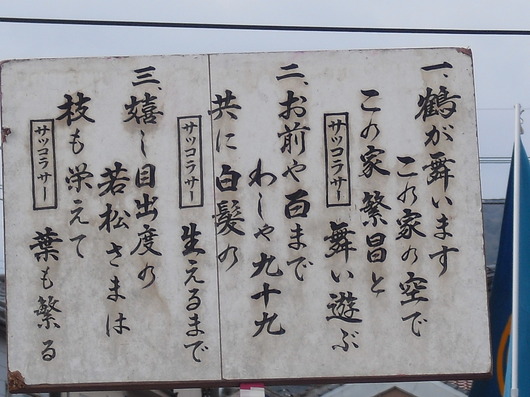 一、鶴が舞います
この家の空で
この家繁昌と
サッコラサー 舞い遊ぶ
二、お前や百まで
わしゃ九十九
共に白髪の
サッコラサー 生えるまで
三、嬉し目出度の
若松さまは
枝も栄えて
サッコラサー 葉も繁る